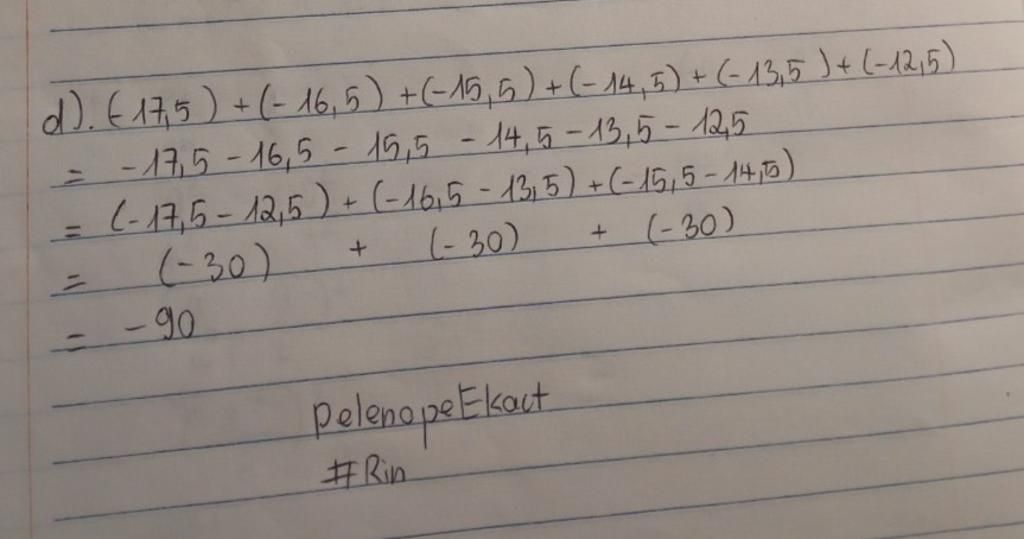 d). (-17,5) + (-16,5) + (-15,5) + (-14,5) + (-13,5) + (-12,5)
= -17,5 - 16,5 - 15,5 - 14,5 - 13,5 - 12,5
= (-17,5 - 12,5) + (-16,5 - 13,5) + (-15,5 - 14,5)
= (-30) + (-30) + (-30)
= -90
pelenopeEkact
#Rin